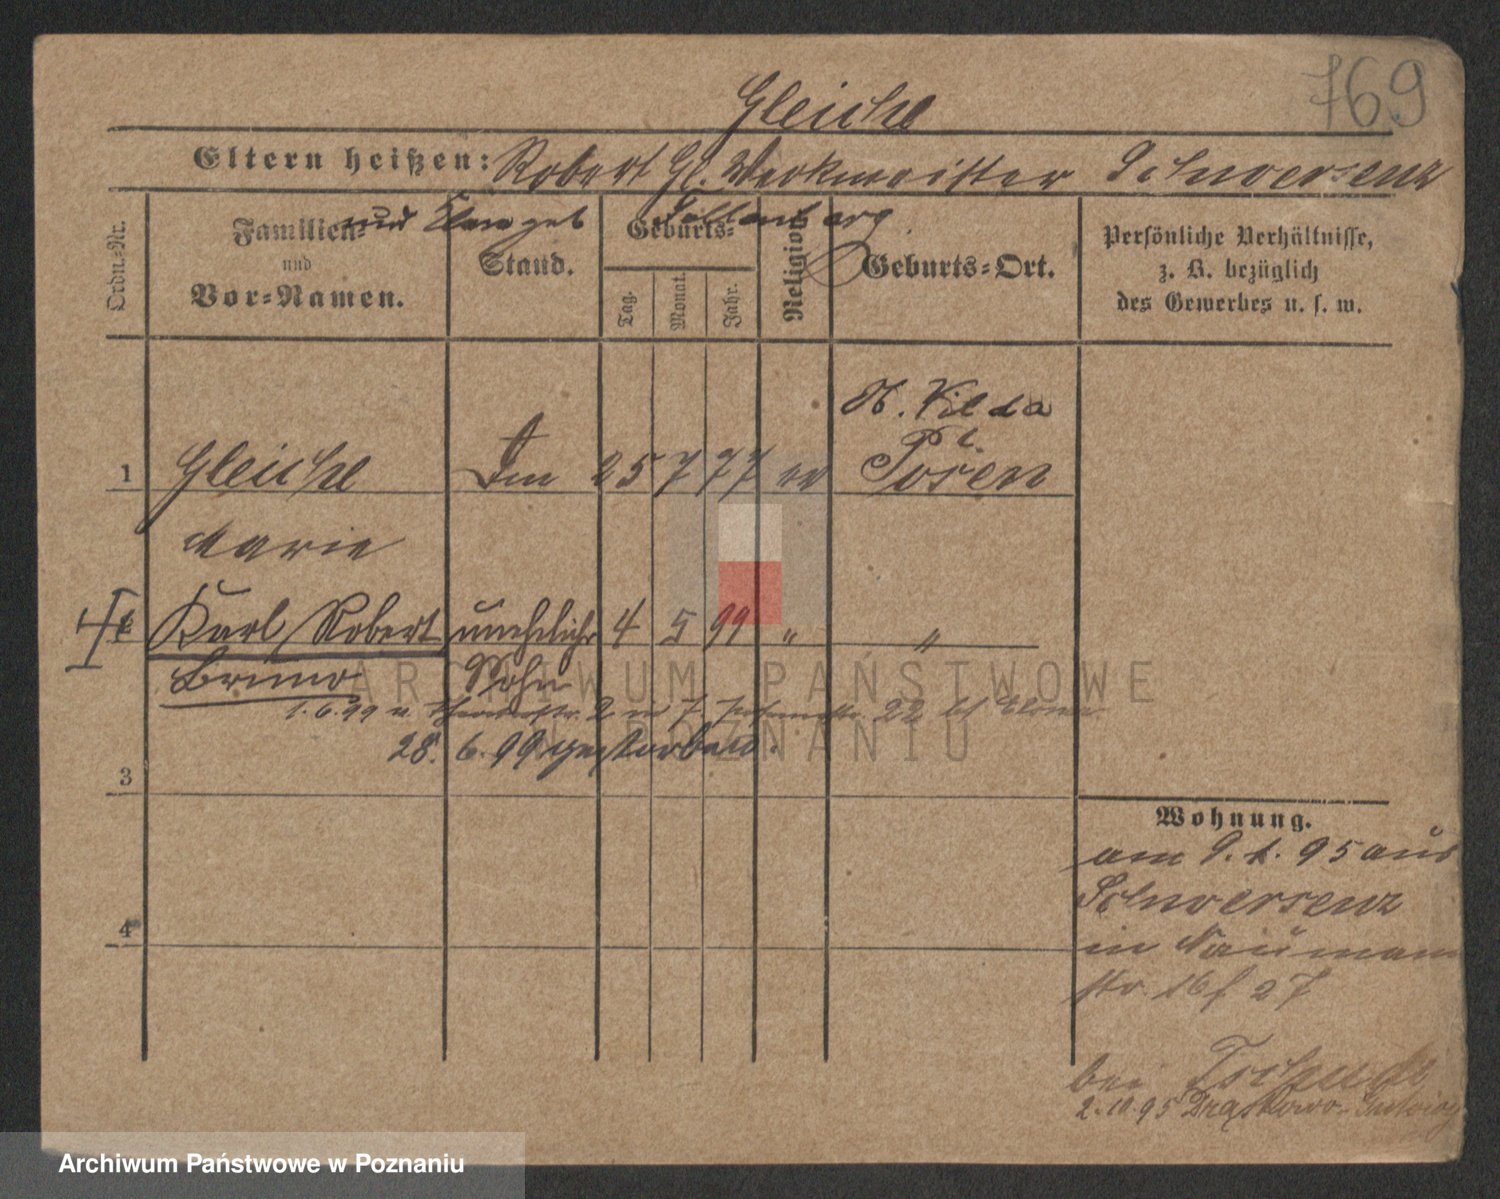 769
Gleiche
Eltern heißen: Robert Gl. Werkmeister Schwersenz
und geb
Familien- und Vor-Namen.
Stand.
Geburts-
Tag.
Monat.
Jahr.
Religion
Geburts-Ort.
Persönliche Verhältnisse,
z. B. bezüglich
des Gewerbes u. s. w.
Ordn.-Nr.
St. Vilda
Pt.
1 Gleiche 25 7 77 ev Posen
Marie
2 Karl Robert unehelicher 4 5 99 " "
Bruno Sohn
1.6.99 2 7 22
28. 6. 99 gestorben.
3
4
Wohnung.
am 9. 1. 95 aus
Schwersenz
in Naumann
str. 16 f 27
bei
2.10.95
ARCHIWUM PAŃSTWOWE
W POZNANIU
Archiwum Państwowe w Poznaniu